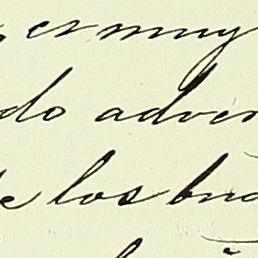 es muy
do adver
de los bra